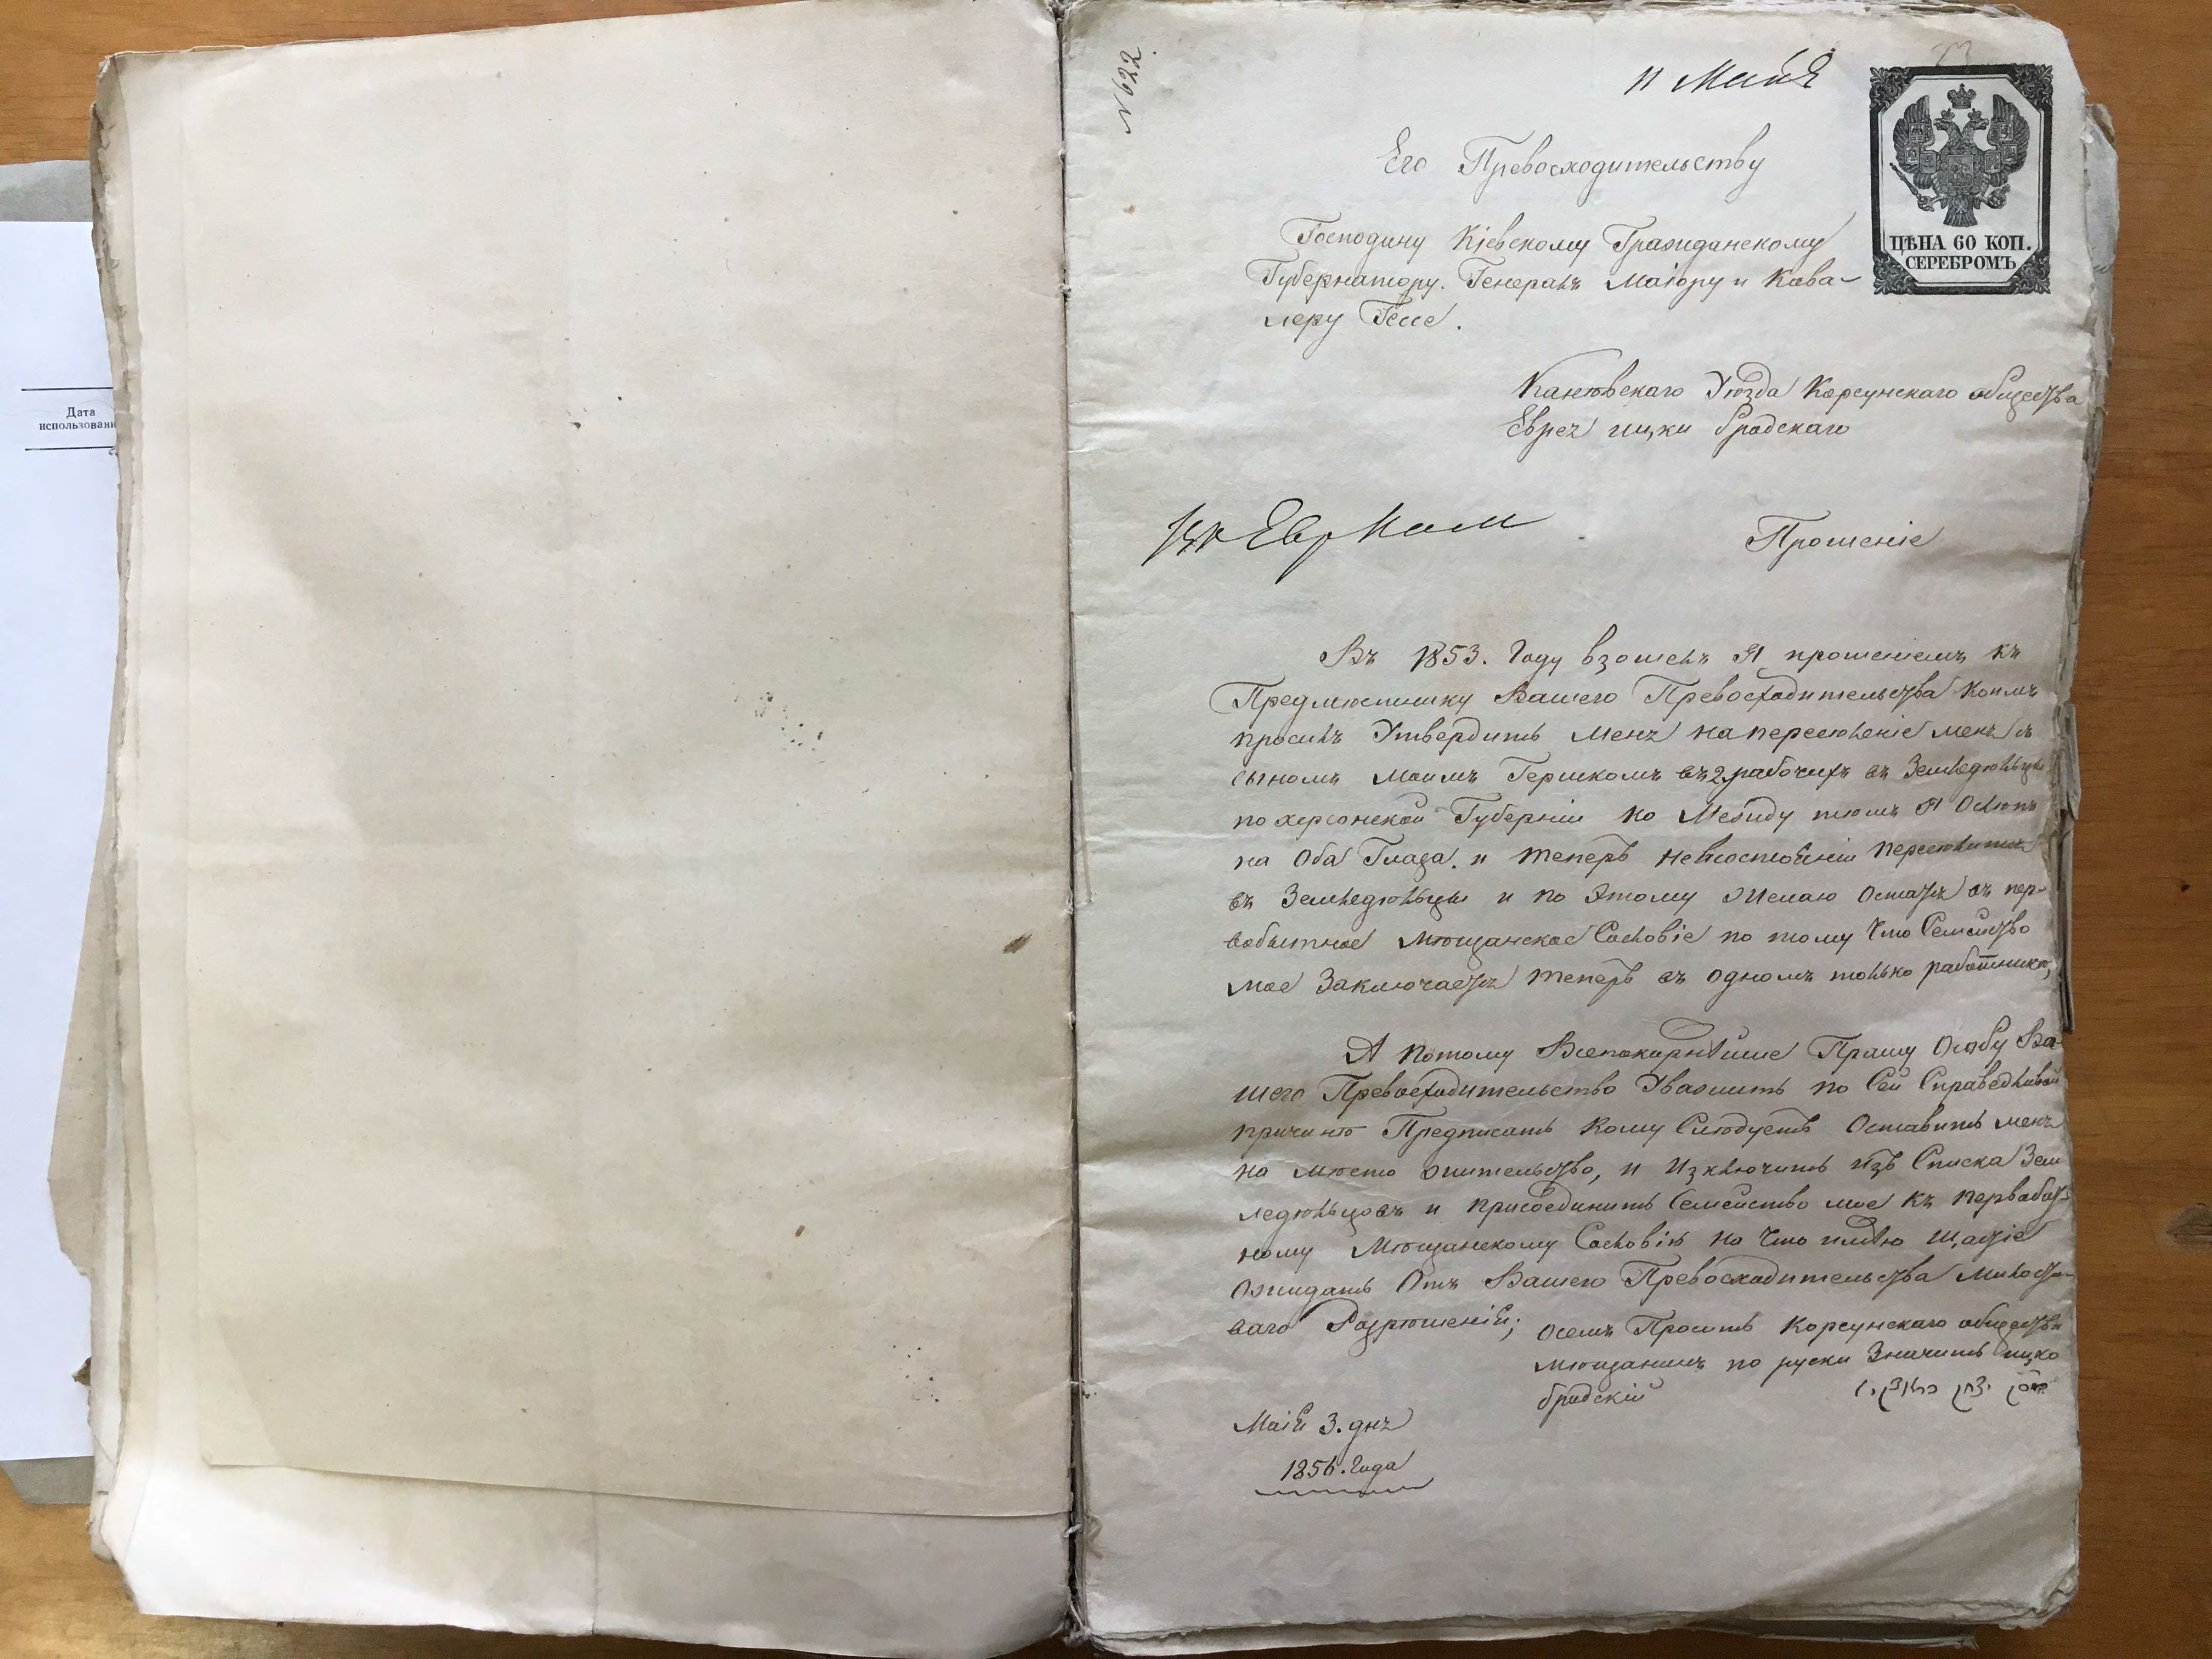 Дата
использован
№ 622
11 Майя
ЦѢНА 60 КОП.
СЕРЕБРОМЪ
Его Превосходительству
Господину Кіевскому Гражданскому
Губернатору. Генералъ Маіору и Кава-
леру Гессе.
Каневскаго Уѣзда Корсунскаго общества
Еврея ицки бродскаго
Прошеніе
Въ 1853. Году взошелъ Я прошеніемъ къ
Предмѣстнику Вашего Превосходительства коимъ
просилъ Утвердить Меня на переселеніе меня съ
сыномъ моимъ Гершкомъ въ 2 рабочихъ въ Земледѣльцы
по херсонской Губерніи но Между тѣмъ Я Ослѣпъ
на Оба Глаза. и теперь невсостоянии переселитця
въ Земледѣльцы и по Этому Желаю Остатся въ пер-
вобытное мѣщанское Сословіе по тому Что Семейство
мое Заключается теперь въ одномъ только работнике;
А потому Всепокорнѣйше Прашу Особу Ва-
шего Превосходительство Уважить по Сей Справедливой
причинѣ Предписать Кому Слѣдуетъ Оставить меня
на мѣсто жительство, и Изключить изъ Списка Зем
ледѣльцовъ и присоединить Семейство мое къ первобыт-
ному Мѣщанскому Сословію на Что имѣю щастіе
Ожидать Отъ Вашего Превосходительства Милости-
ваго Разрѣшеній; Осемъ Проситъ Корсунскаго общества
мѣщанинъ по руски Значитъ ицко
бродскій יצחק בראדצקי
Маія 3. дня
1856. Года